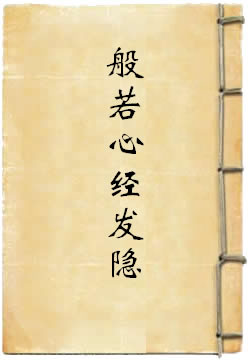 般若心经发隐